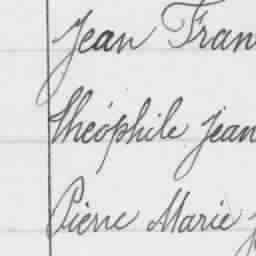 Jean Fran
Théophile Jean
Pierre Marie J